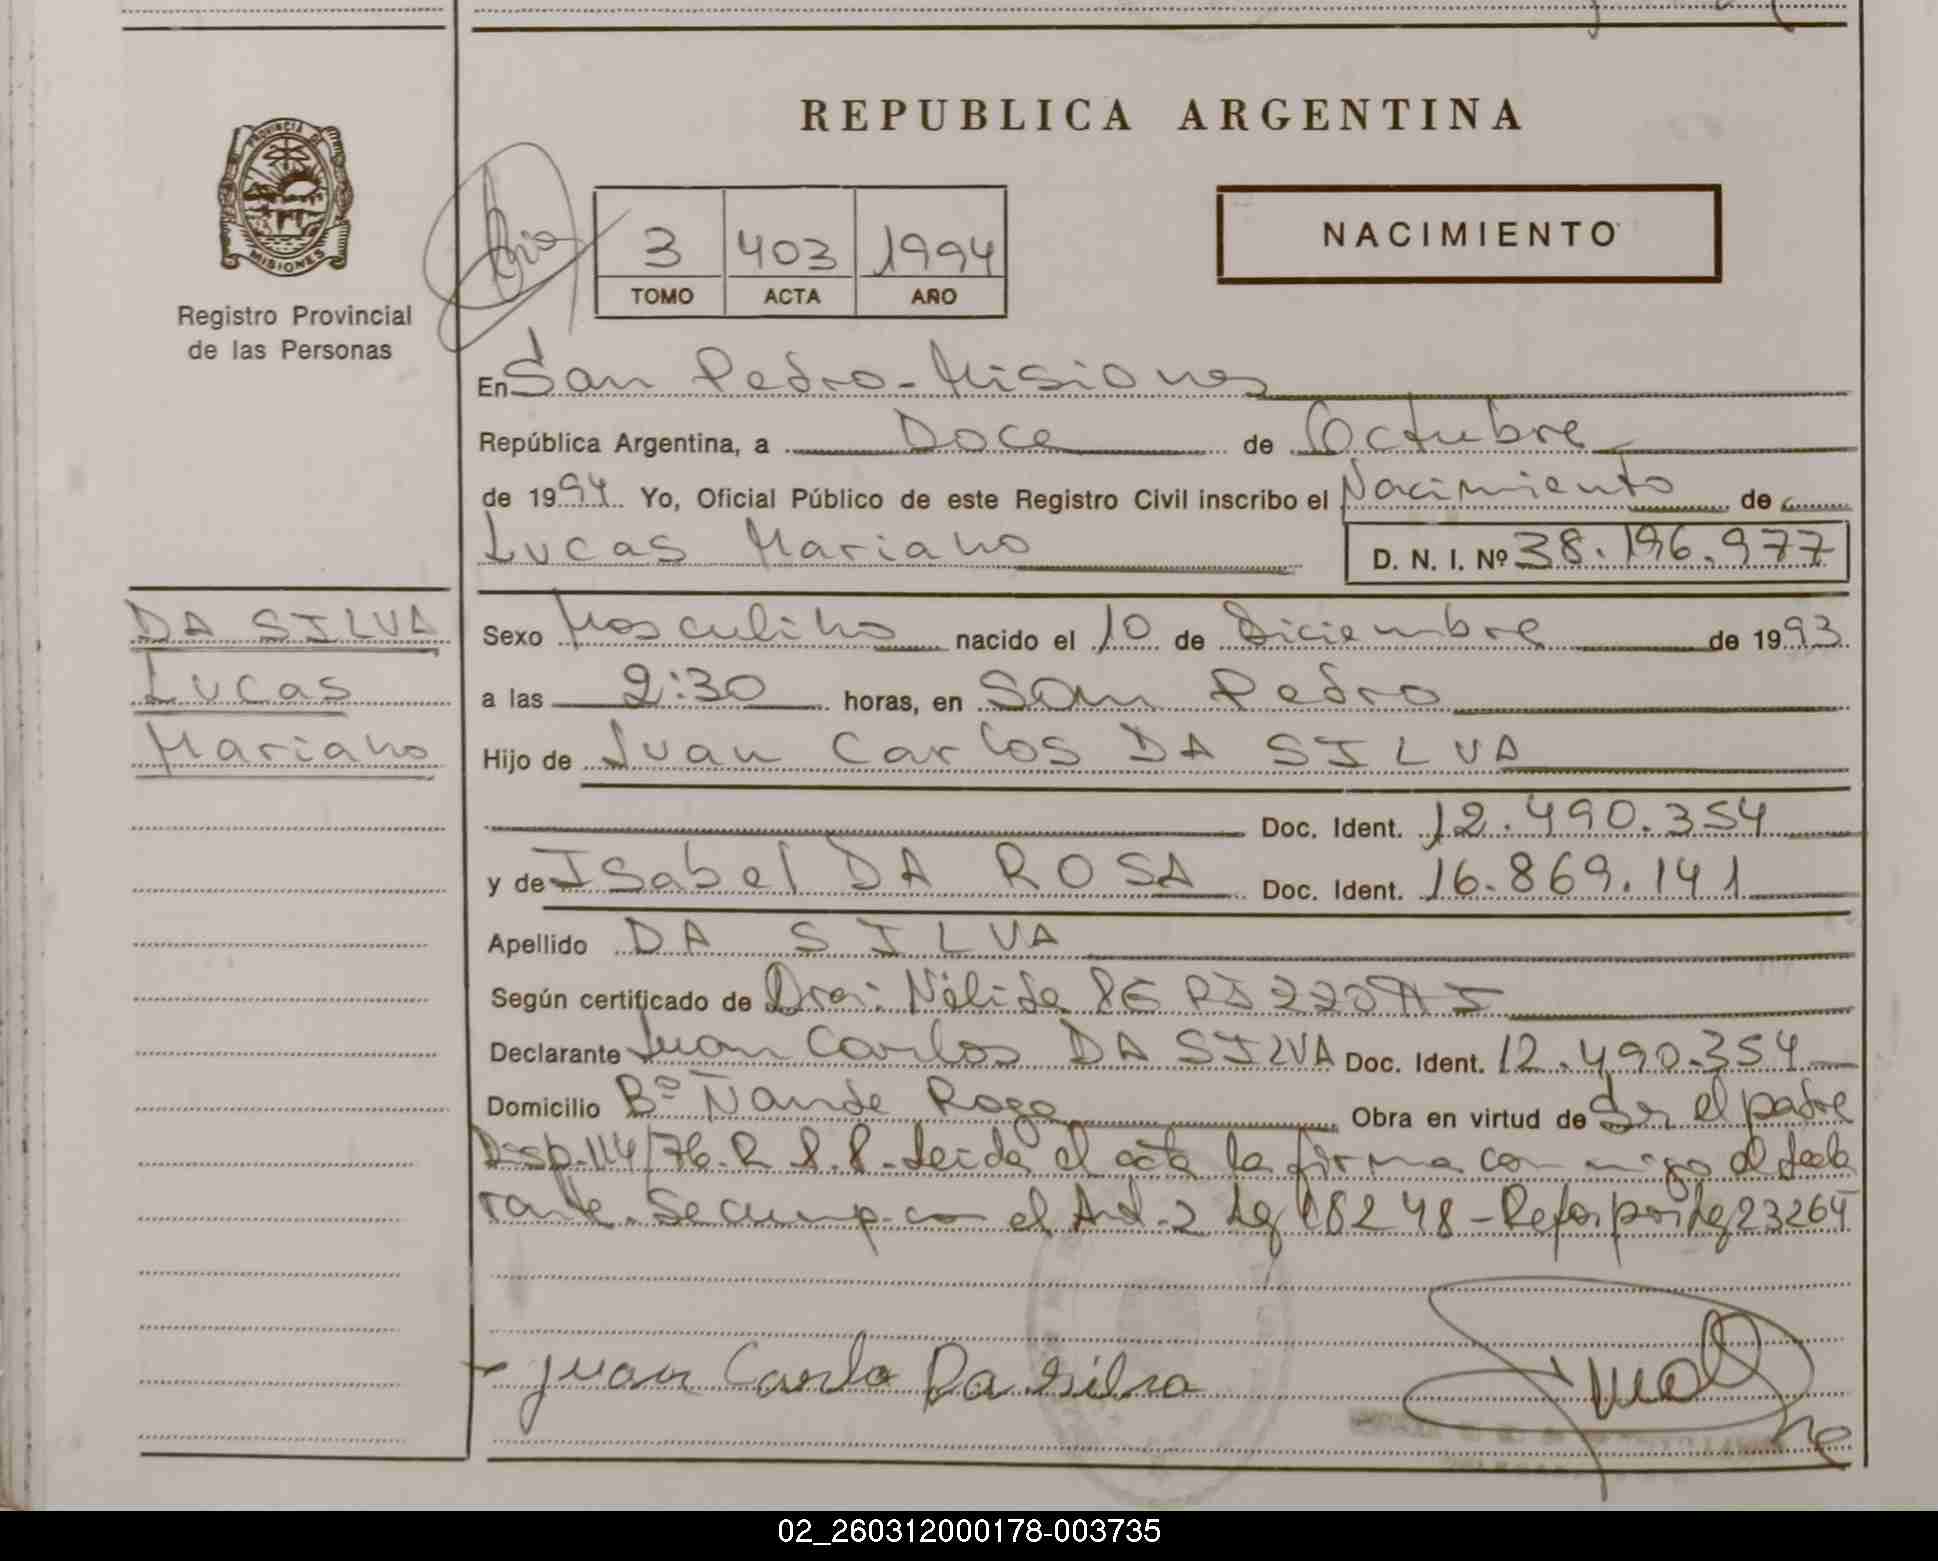 REPUBLICA ARGENTINA
PROVINCIA DE MISIONES
Registro Provincial
de las Personas
3 403 1994
TOMO ACTA AÑO
NACIMIENTO
En San Pedro - Misiones
República Argentina, a Doce de Octubre
de 1994 Yo, Oficial Público de este Registro Civil inscribo el Nacimiento de
Lucas Mariano D. N. I. Nº 38.196.977
DA SILVA
Lucas
Mariano
Sexo Masculino nacido el 10 de Diciembre de 1993
a las 2:30 horas, en San Pedro
Hijo de Juan Carlos DA SILVA
Doc. Ident. 12.490.354
y de Isabel DA ROSA Doc. Ident. 16.869.141
Apellido DA SILVA
Según certificado de Dra: Nélida
Declarante Juan Carlos DA SILVA Doc. Ident. 12.490.354
Domicilio Bº Ñande Roga Obra en virtud de Ser el padre
Disp. 114/76. R. P. P. Leida el acta la firma conmigo el decla
rante. Se cump. con el Art. 2 Ley 18248 - Refor por Ley 23264
Juan Carlo Da Silva
02_260312000178-003735